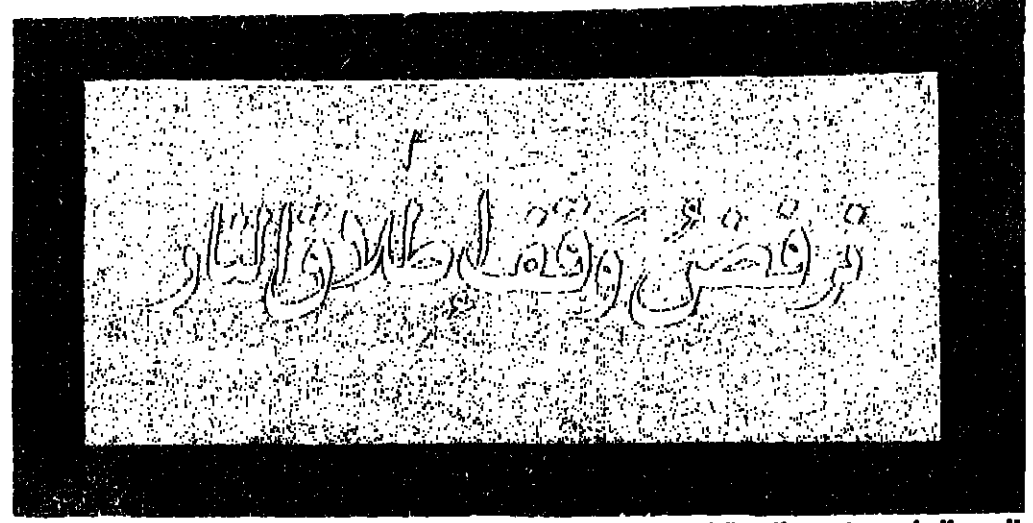 نرفضُ وَقف إطلاق النار